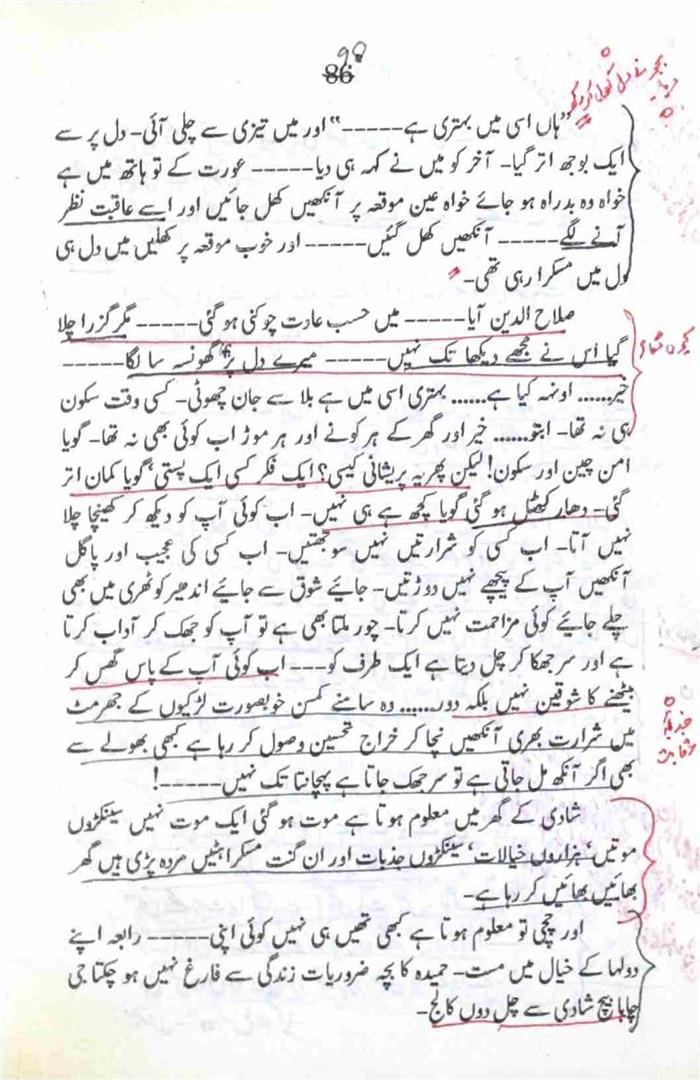 90
86
ہجر نے دل کھول کر
"ہاں اسی میں بہتری ہے-----" اور میں تیزی سے چلی آئی- دل پر سے
ایک بوجھ اتر گیا- آخر کو میں نے کہہ ہی دیا----- عورت کے تو ہاتھ میں ہے
خواہ وہ بدراہ ہو جائے خواہ عین موقعہ پر آنکھیں کھل جائیں اور اسے عاقبت نظر
آنے لگے----- آنکھیں کھل گئیں----- اور خوب موقعہ پر کھلیں میں دل ہی
دل میں مسکرا رہی تھی-
صلاح الدین آیا----- میں حسب عادت چوکنی ہو گئی----- مگر گزرا چلا
گیا اس نے مجھے دیکھا تک نہیں----- میرے دل پر گھونسہ سا لگا-----
خیر...... اونہہ کیا ہے...... بہتری اسی میں ہے بلا سے جان چھوٹی- کسی وقت سکون
ہی نہ تھا- ابتو...... خیر اور گھر کے ہر کونے اور ہر موڑ اب کوئی بھی نہ تھا- گویا
امن چین اور سکون! لیکن پھر یہ پریشانی کیسی؟ ایک فکر کسی ایک پستی' گویا کمان اتر
گئی- دھار کھٹل ہو گئی گویا کچھ ہے ہی نہیں- اب کوئی آپ کو دیکھ کر کھینچا چلا
نہیں آتا- اب کسی کو شرارتیں نہیں سوجھتیں- اب کسی کی عجیب اور پاگل
آنکھیں آپ کے پیچھے نہیں دوڑتیں- جائیے شوق سے جائیے اندھیر کوٹھری میں بھی
چلے جائیے کوئی مزاحمت نہیں کرتا- چور ملتا بھی ہے تو آپ کو جھک کر آداب کرتا
ہے اور سر جھکا کر چل دیتا ہے ایک طرف کو--- اب کوئی آپ کے پاس گھس کر
بیٹھنے کا شوقین نہیں بلکہ دور...... وہ سامنے کمسن خوبصورت لڑکیوں کے جھرمٹ
میں شرارت بھری آنکھیں نچا کر خراج تحسین وصول کر رہا ہے کبھی بھولے سے
بھی اگر آنکھ مل جاتی ہے تو سر جھک جاتا ہے پہچانتا تک نہیں-----!
شادی کے گھر میں معلوم ہوتا ہے موت ہو گئی ایک موت نہیں سینکڑوں
موتیں' ہزاروں خیالات' سینکڑوں جذبات اور ان گنت مسکراہٹیں مردہ پڑی ہیں گھر
بھائیں بھائیں کر رہا ہے-
اور چچی تو معلوم ہوتا ہے کبھی تھیں ہی نہیں کوئی اپنی----- رابعہ اپنے
دولہا کے خیال میں مست- حمیدہ کا بچہ ضروریات زندگی سے فارغ نہیں ہو چکتا جی
چاہا بیچ شادی سے چل دوں کالج-